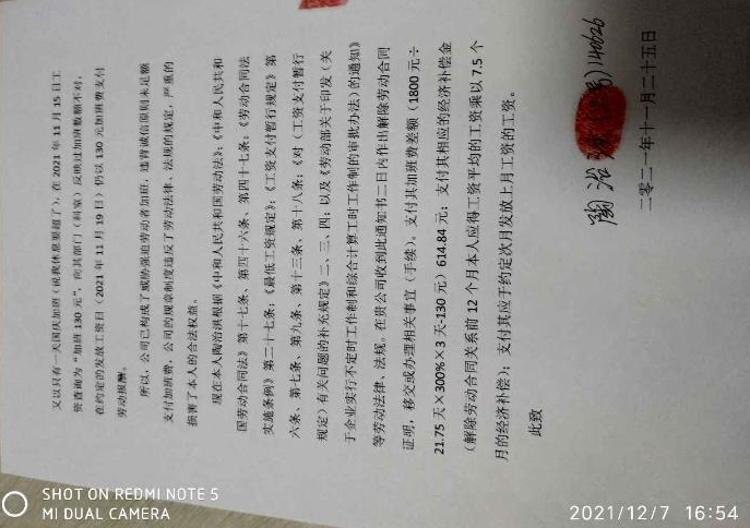 又以只有一天国庆加班(说我休息要超了),在 2021 年 11 月 15 日工
资查询为"加班 130 元",向其部门(科室)反映过加班数额不对,
在约定的发放工资日(2021 年 11 月 19 日)仍以 130 元加班费支付
劳动报酬。
所以,公司已构成了威胁强迫劳动者加班,违背诚信原则未足额
支付加班费,公司的规章制度违反了劳动法律、法规的规定,严重的
损害了本人的合法权益。
现在本人陶治洪根据《中和人民共和国劳动法》;《中和人民共和
国劳动合同法》第十七条、第四十六条、第四十七条;《劳动合同法
实施条例》第二十七条;《最低工资规定》;《工资支付暂行规定》第
六条、第七条、第九条、第十三条、第十八条;《对〈工资支付暂行
规定〉有关问题的补充规定》二、三、四;以及《劳动部关于印发〈关
于企业实行不定时工作制和综合计算工时工作制的审批办法〉的通知》
等劳动法律、法规。在贵公司收到此通知书二日内作出解除劳动合同
证明,移交或办理相关事宜(手续)。支付其加班费差额(1800 元÷
21.75 天×300%×3 天-130 元)614.84 元;支付其相应的经济补偿金
(解除劳动合同关系前 12 个月本人应得工资平均的工资乘以 7.5 个
月的经济补偿);支付其应于约定次月发放上月工资的工资。
此致
陶治洪 140626
二零二一年十一月二十五日
SHOT ON REDMI NOTE 5
MI DUAL CAMERA
2021/12/7 16:54